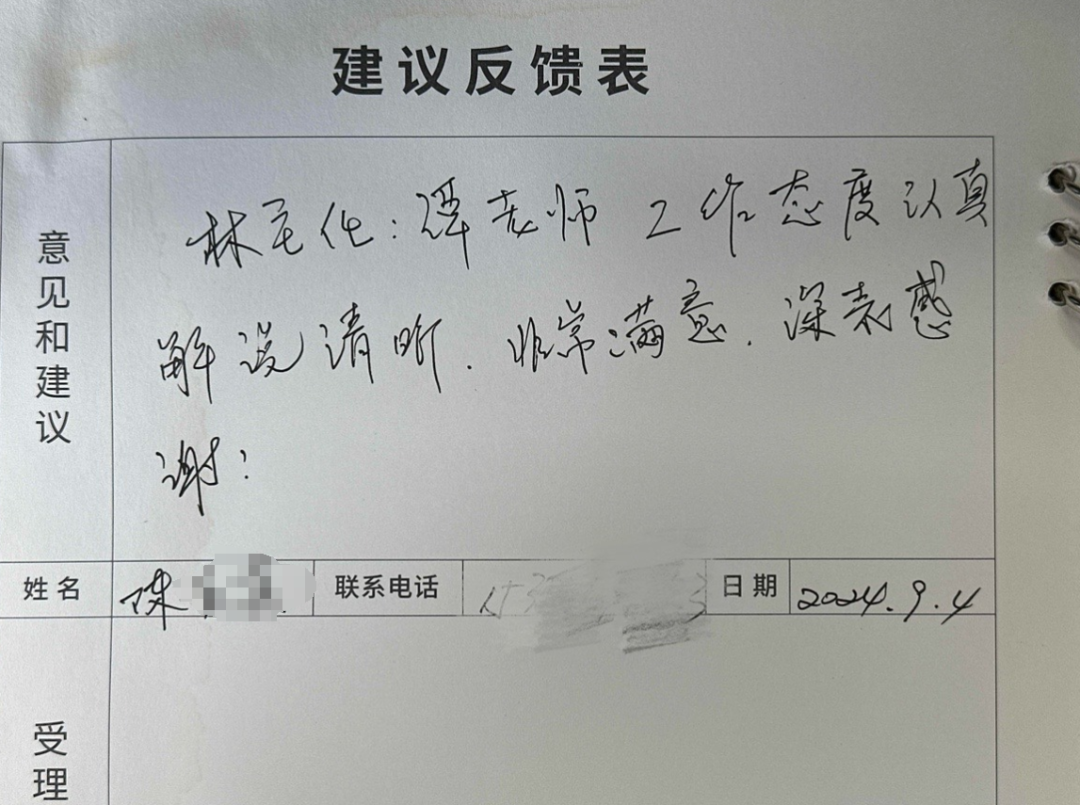 建议反馈表
意见和建议
林主任：谭老师 工作态度认真
解说清晰．非常满意．深表感
谢：
姓名 陈 联系电话 日期 2024.9.4
受理